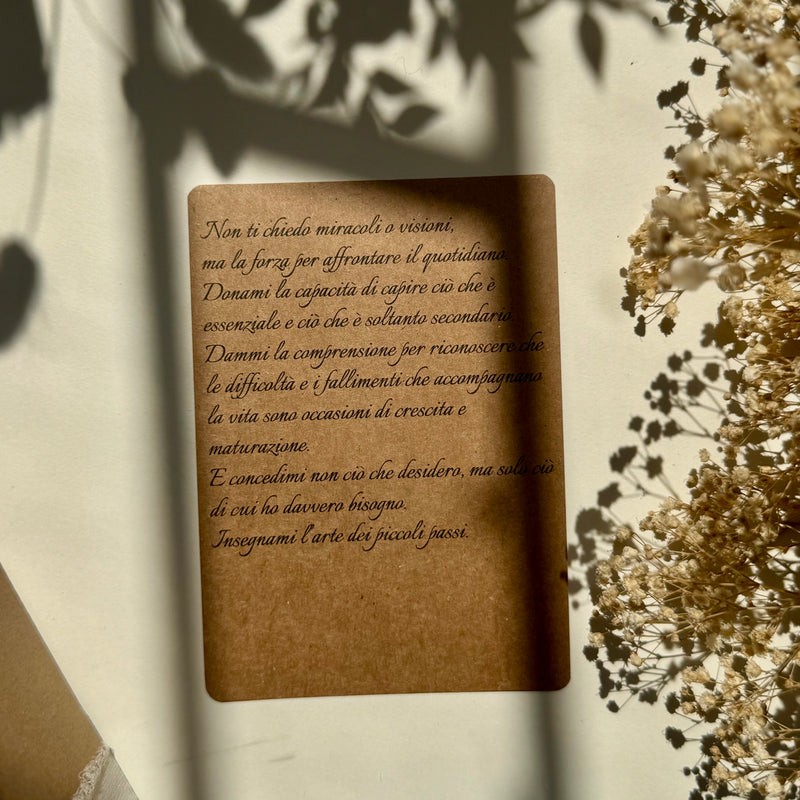 Non ti chiedo miracoli o visioni,
ma la forza per affrontare il quotidiano.
Donami la capacità di capire ciò che è
essenziale e ciò che è soltanto secondario.
Dammi la comprensione per riconoscere che
le difficoltà e i fallimenti che accompagnano
la vita sono occasioni di crescita e
maturazione.
E concedimi non ciò che desidero, ma solo ciò
di cui ho davvero bisogno.
Insegnami l'arte dei piccoli passi.